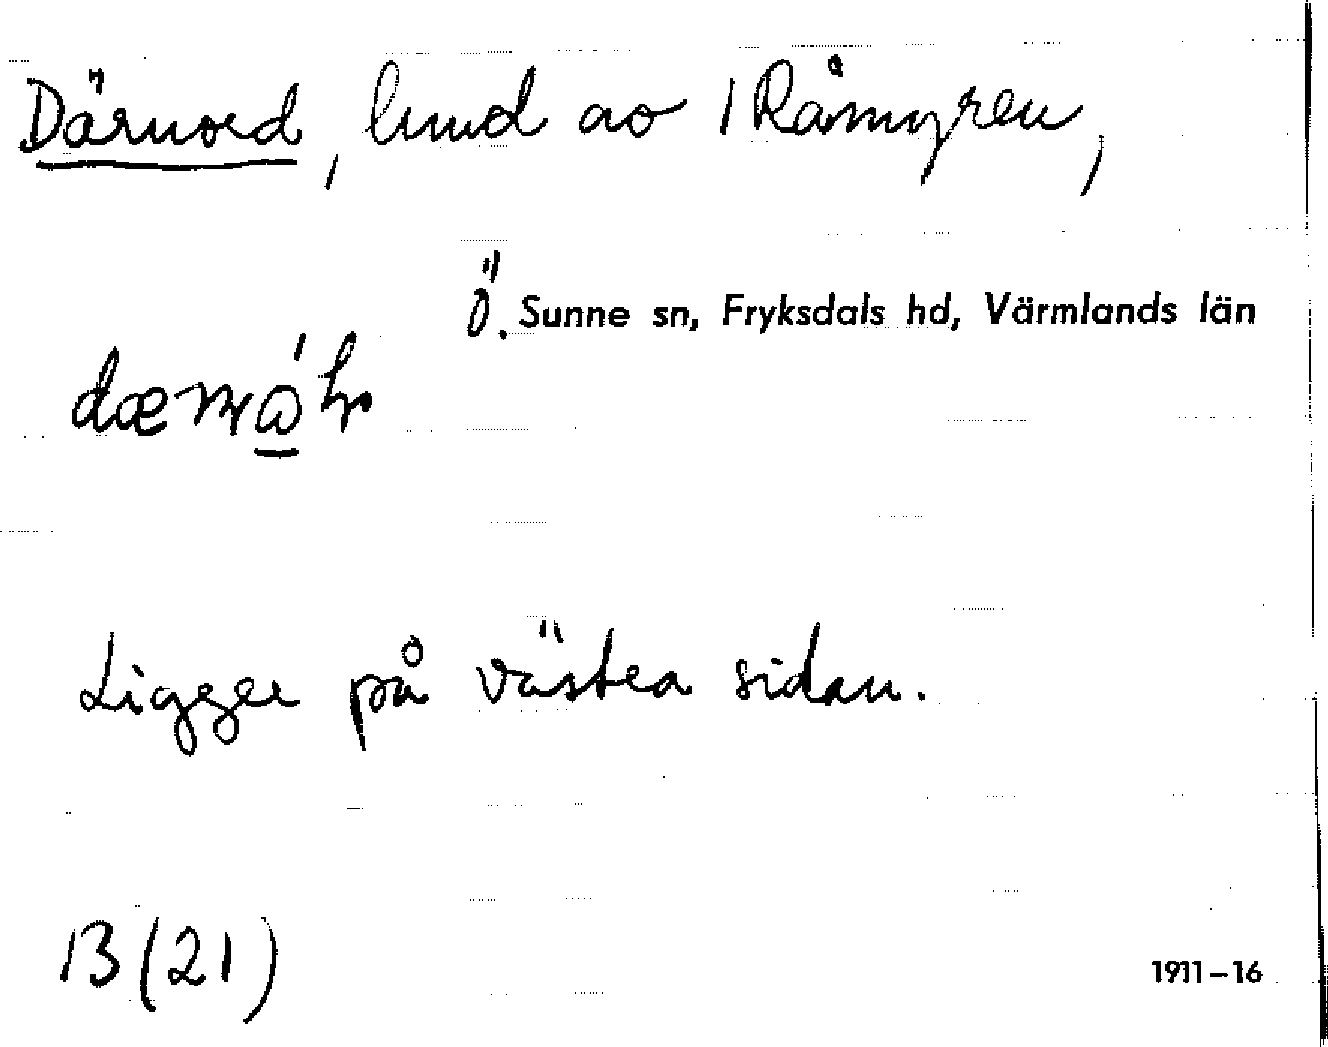 Därnord, lund av 1 Råmyren,
Ö. Sunne sn, Fryksdals hd, Värmlands län
Ligger på västra sidan.
13 (21)
1911-16